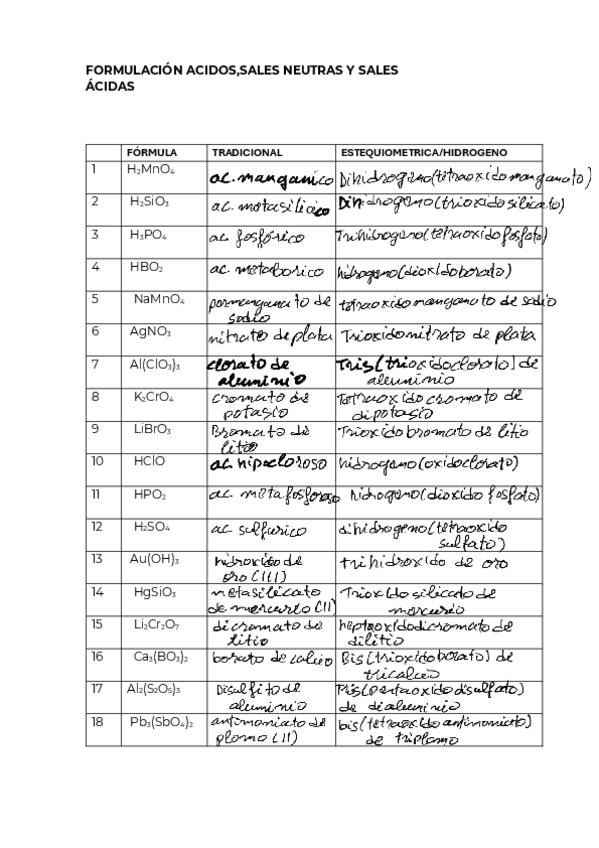 FORMULACIÓN ACIDOS,SALES NEUTRAS Y SALES
ÁCIDAS
FÓRMULA TRADICIONAL ESTEQUIOMETRICA/HIDROGENO
1 H₂MnO₄ ac. manganico Dihidrogeno(tetraoxidomanganato)
2 H₂SiO₃ ac. metasilicico Dihidrogeno(trioxidosilicato)
3 H₃PO₄ ac. fosfórico Trihidrogeno(tetraoxidofosfato)
4 HBO₂ ac. metaborico hidrogeno(dioxidoborato)
5 NaMnO₄ permanganato de tetraoxidomanganato de sodio
sodio
6 AgNO₃ nitrato de plata Trioxidonitrato de plata
7 Al(ClO₃)₃ clorato de Tris(trioxidoclorato) de
aluminio aluminio
8 K₂CrO₄ cromato de Tetraoxidocromato de
potasio dipotasio
9 LiBrO₃ Bromato de Trioxidobromato de litio
litio
10 HClO ac. hipocloroso hidrogeno(oxidoclorato)
11 HPO₂ ac. metafosforoso hidrogeno(dioxidofosfato)
12 H₂SO₄ ac. sulfurico dihidrogeno(tetraoxido
sulfato)
13 Au(OH)₃ hidroxido de trihidroxido de oro
oro (III)
14 HgSiO₃ metasilicato Trioxido silicato de
de mercurio (II) mercurio
15 Li₂Cr₂O₇ dicromato de heptaoxidodicromato de
litio dilitio
16 Ca₃(BO₃)₂ borato de calcio Bis(trioxidoborato) de
tricalcio
17 Al₂(S₂O₅)₃ Disulfito de Tris(pentaoxidodisulfato)
aluminio de dialuminio
18 Pb₃(SbO₄)₂ antimoniato de bis(tetraoxidoantimoniato)
plomo (II) de triplomo